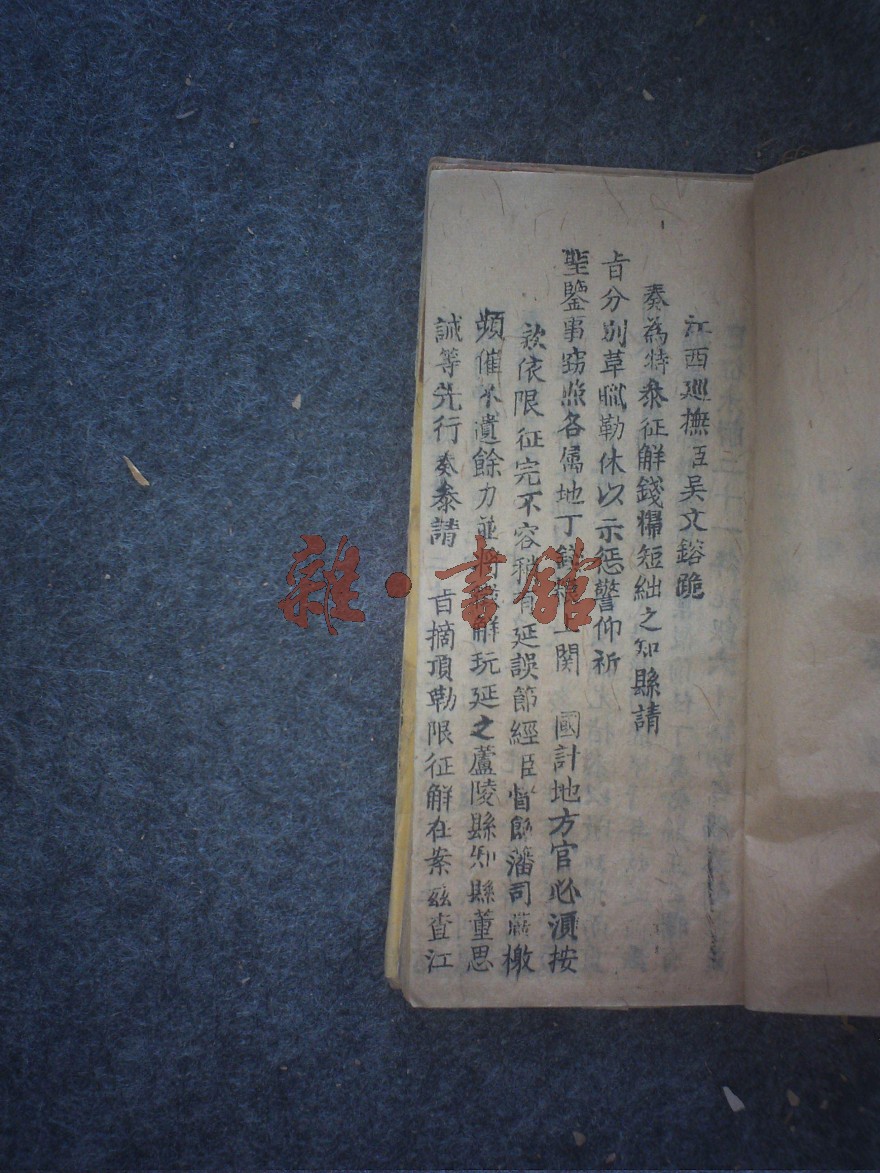 江西廵撫臣吴文鎔跪
奏為特叅征解錢粮短絀之知縣請
旨分别革職勒休以示惩警仰祈
聖鑒事窃照各属地丁錢粮上関 國計地方官必須按
欵依限征完不容稍有延誤節經臣督飭藩司嚴檄
頻催不遺餘力並将征解玩延之蘆陵縣知縣董思
誠等先行奏叅請 旨摘頂勒限征解在案兹查江
雜·書館